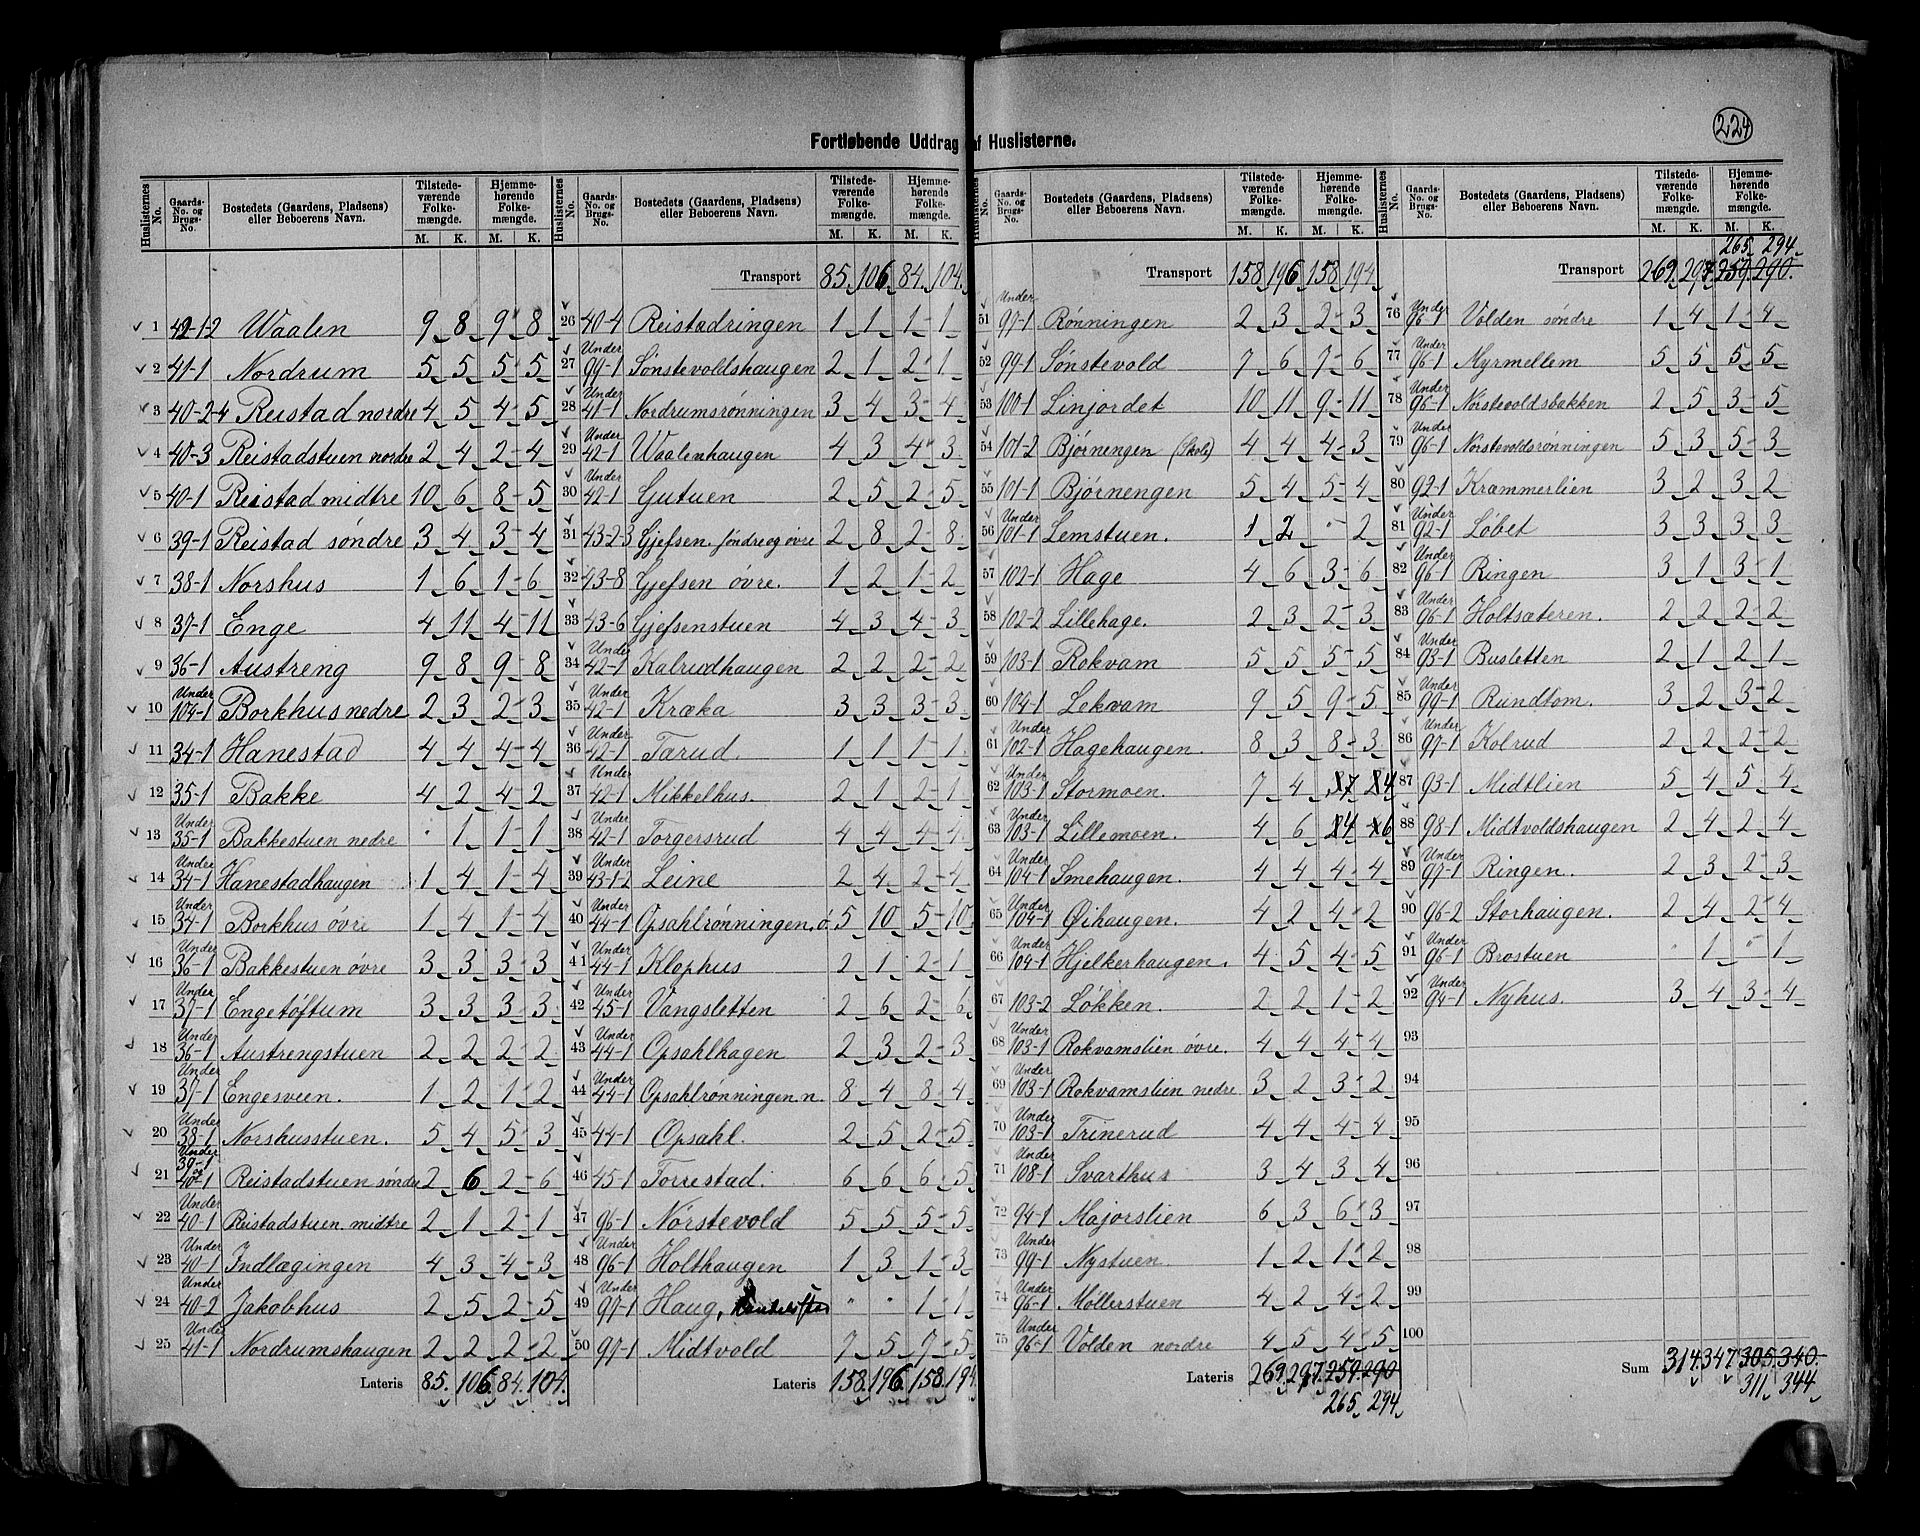 224
Fortløbende Uddrag af Huslisterne.
Huslisternes No. Gaards- No. og Brugs- No. Bostedets (Gaardens, Pladsens) eller Beboerens Navn. Tilstede- værende Folke- mængde. M. K. Hjemme- hørende Folke- mængde. M. K.
1 42-1-2 Waalen 9 8 9 8
2 41-1 Nordrum 5 5 5 5
3 40-2-4 Reistad nordre 4 5 4 5
4 40-3 Reistadstuen nordre 2 4 2 4
5 40-1 Reistad midtre 10 6 8 5
6 39-1 Reistad søndre 3 4 3 4
7 38-1 Norshus 1 6 1 6
8 37-1 Enge 4 11 4 11
9 36-1 Austreng 9 8 9 8
10 Under 104-1 Borkhus nedre 2 3 2 3
11 34-1 Hanestad 4 4 4 4
12 35-1 Bakke 4 2 4 2
13 Under 35-1 Bakkestuen nedre " 1 1 1
14 Under 34-1 Hanestadhaugen 1 4 1 4
15 Under 34-1 Borkhus øvre 1 4 1 4
16 Under 36-1 Bakkestuen øvre 3 3 3 3
17 Under 37-1 Engetøftum 3 3 3 3
18 Under 36-1 Austrengstuen 2 2 2 2
19 Under 37-1 Engesveen. 1 2 1 2
20 Under 38-1 Norshusstuen. 5 4 5 3
21 Under 39-1 og 40-1 Reistadstuen søndre 2 6 2 6
22 Under 40-1 Reistadstuen midtre 2 1 2 1
23 Under 40-1 Indlægingen 4 3 4 3
24 Under 40-2 Jakobhus 2 5 2 5
25 Under 41-1 Nordrumshaugen 2 2 2 2
Lateris 85. 106. 84. 104.
Huslisternes No. Gaards- No. og Brugs- No. Bostedets (Gaardens, Pladsens) eller Beboerens Navn. Tilstede- værende Folke- mængde. M. K. Hjemme- hørende Folke- mængde. M. K.
Transport 85. 106. 84. 104.
26 40-4 Reistadringen 1 1 1 1
27 Under 99-1 Sønstevoldshaugen 2 1 2 1
28 Under 41-1 Nordrumsrønningen 3 4 3 4
29 Under 42-1 Waalenhaugen 4 3 4 3
30 Under 42-1 Gutuen 2 5 2 5
31 43-2-3 Gjefsen. søndre og øvre 2 8 2 8
32 43-8 Gjefsen øvre. 1 2 1 2
33 43-6 Gjefsenstuen 4 3 4 3
34 Under 42-1 Kalrudhaugen 2 2 2 2
35 Under 42-1 Kræka 3 3 3 3
36 Under 42-1 Tarud. 1 1 1 1
37 Under 42-1 Mikkelhus. 2 1 2 1
38 Under 42-1 Torgersrud 4 4 4 4
39 Under 43-1-2 Leine 2 4 2 4
40 Under 44-1 Opsahlrønningen, ø. 5 10 5 10
41 Under 44-1 Klophus 2 1 2 1
42 Under 45-1 Vangsletten 2 6 2 6
43 Under 44-1 Opsahlhagen 2 3 2 3
44 Under 44-1 Opsahlrønningen n. 8 4 8 4
45 44-1 Opsahl. 2 5 2 5
46 45-1 Torrestad. 6 6 6 5
47 96-1 Nørstevold 5 5 5 5
48 Under 96-1 Holthaugen 1 3 1 3
49 Under 97-1 Haug, " " 1 1
50 97-1 Midtvold 7 5 7 5
Lateris 158. 196. 158. 194.
Huslisternes No. Gaards- No. og Brugs- No. Bostedets (Gaardens, Pladsens) eller Beboerens Navn. Tilstede- værende Folke- mængde. M. K. Hjemme- hørende Folke- mængde. M. K.
Transport 158 196 158 194
51 Under 97-1 Rønningen 2 3 2 3
52 99-1 Sønstevold 7 6 7 6
53 100-1 Linjordet 10 11 9 11
54 101-2 Bjørnengen (Skole) 4 4 4 3
55 101-1 Bjørnengen 5 4 5 4
56 Under 101-1 Lemstuen. 1 2 " 2
57 102-1 Hage 4 6 3 6
58 102-2 Lillehage. 2 3 2 3
59 103-1 Rokvam 5 5 5 5
60 104-1 Lekvam 9 5 9 5
61 Under 102-1 Hagehaugen. 8 3 8 3
62 Under 103-1 Stormoen. 7 4 7 4
63 Under 103-1 Lillemoen. 4 6 4 6
64 Under 104-1 Smehaugen. 4 4 4 4
65 Under 104-1 Øihaugen. 4 2 4 2
66 Under 104-1 Hjelkerhaugen. 4 5 4 5
67 103-2 Løkken. 2 2 1 2
68 Under 103-1 Rokvamslien øvre. 4 4 4 4
69 Under 103-1 Rokvamslien nedre 3 2 3 2
70 Under 103-1 Trinerud 4 4 4 4
71 Under 108-1 Svarthus 3 4 3 4
72 94-1 Majorslien 6 3 6 3
73 Under 99-1 Nystuen. 1 2 1 2
74 Under 96-1 Møllerstuen 4 2 4 2
75 Under 96-1 Volden nordre 4 5 4 5
Lateris 269. 297. 259. 290
265. 294.
Huslisternes No. Gaards- No. og Brugs- No. Bostedets (Gaardens, Pladsens) eller Beboerens Navn. Tilstede- værende Folke- mængde. M. K. Hjemme- hørende Folke- mængde. M. K.
265. 294.
Transport 269. 297. 259. 290.
76 Under 96-1 Volden søndre 1 4 1 4
77 Under 96-1 Myrmellem 5 5 5 5
78 Under 96-1 Norstevoldsbakken 2 5 3 5
79 Under 96-1 Norstevoldsrønningen 5 3 5 3
80 92-1 Kræmmerlien 3 2 3 2
81 Under 92-1 Løbet 3 3 3 3
82 Under 96-1 Ringen 3 1 3 1
83 Under 96-1 Holtsæteren. 2 2 2 2
84 Under 93-1 Busletten 2 1 2 1
85 Under 99-1 Rundtom. 3 2 3 2
86 Under 97-1 Kolrud 2 2 2 2
87 93-1 Midtlien 5 4 5 4
88 98-1 Midtvoldshaugen 2 4 2 4
89 Under 97-1 Ringen. 2 3 2 3
90 96-2 Storhaugen. 2 4 2 4
91 Under 96-1 Brostuen " 1 " 1
92 Under 94-1 Nyhus. 3 4 3 4
93
94
95
96
97
98
99
100
Sum 314. 347. 305. 340.
311. 344.